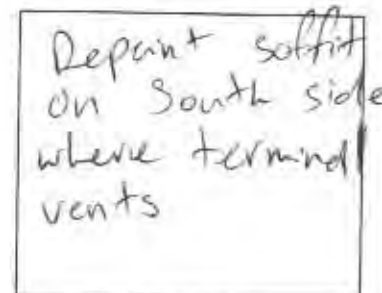 Repaint soffit
on South side
where termind
vents